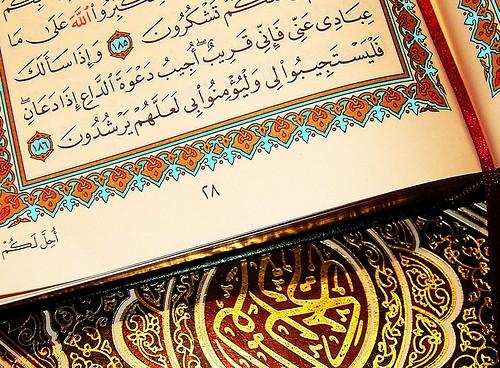 تَشْكُرُونَ ١٨٥ وَإِذَا سَأَلَكَ
عِبَادِى عَنِّى فَإِنِّى قَرِيبٌ ۖ أُجِيبُ دَعْوَةَ ٱلدَّاعِ إِذَا دَعَانِ ۖ
فَلْيَسْتَجِيبُوا۟ لِى وَلْيُؤْمِنُوا۟ بِى لَعَلَّهُمْ يَرْشُدُونَ ١٨٦
٢٨
أُحِلَّ لَكُمْ